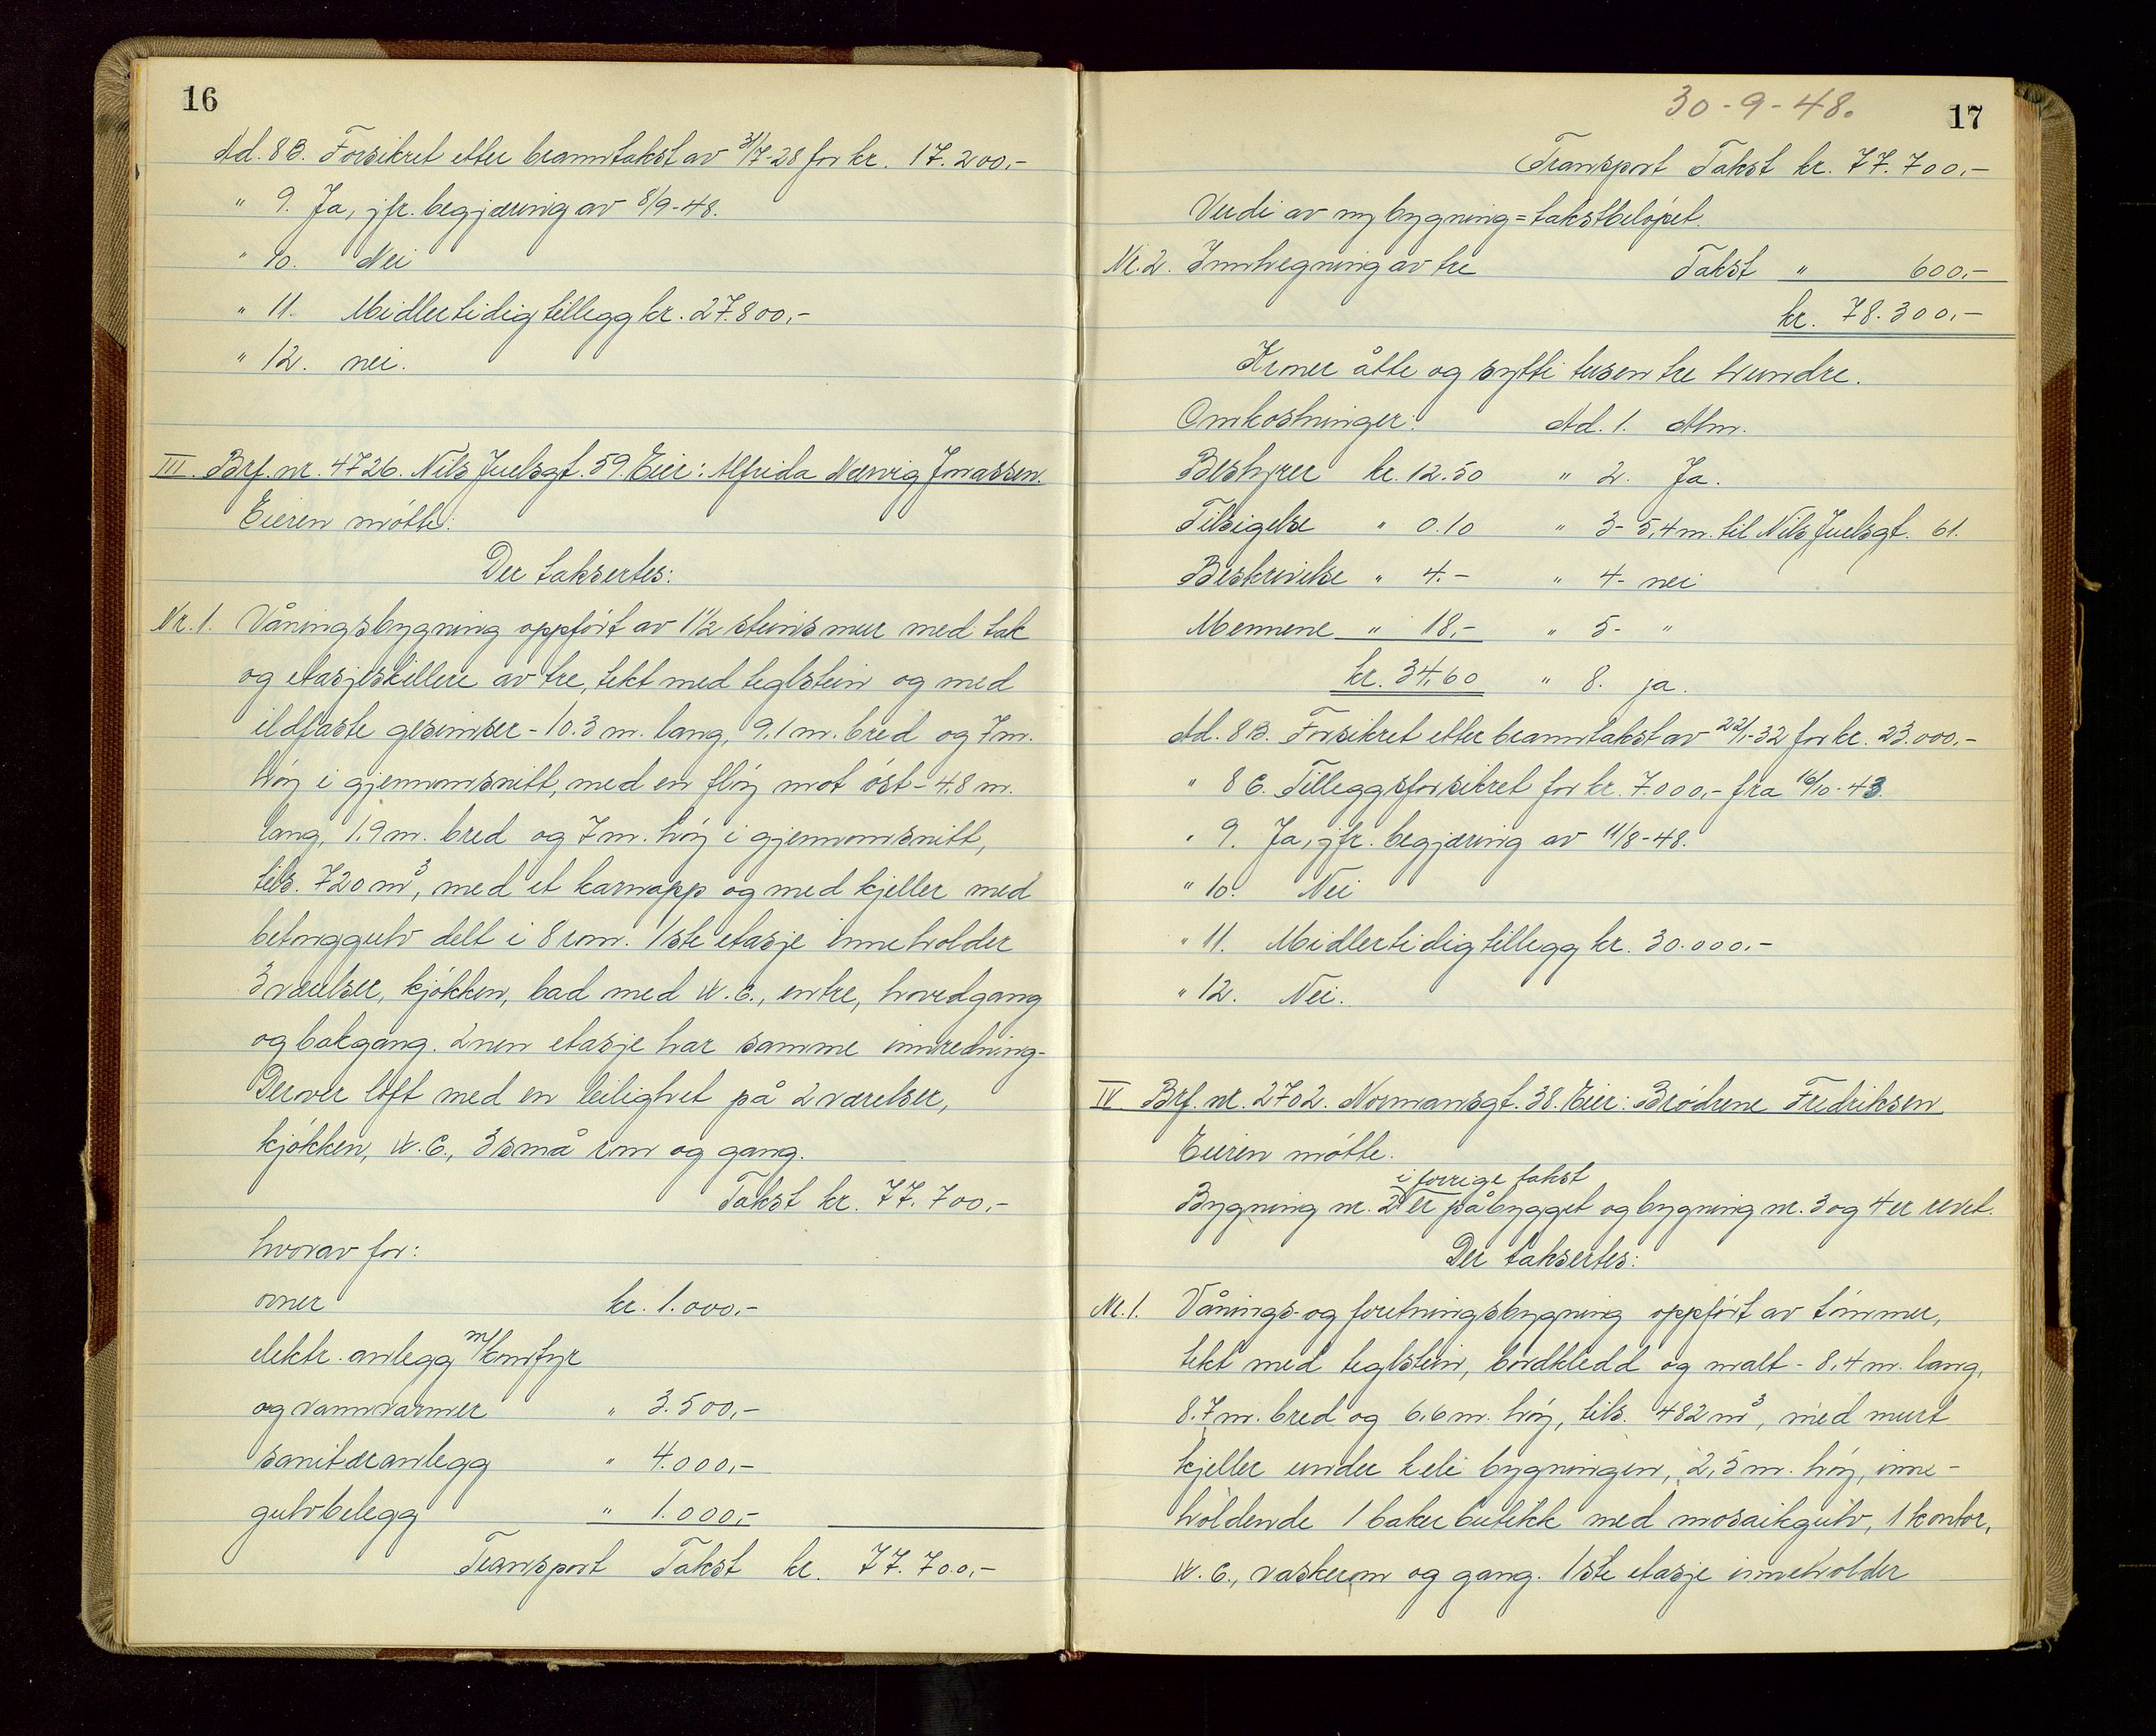 16
Ad. 8B. Forsikret etter branntakst av 31/7-28 for kr. 17.200,-
" 9. Ja, jfr. begjæring av 8/9-48.
" 10. Nei
" 11. Midlertidig tillegg kr. 27.800,-
" 12. nei.
III. Brf. nr. 4726. Nils Juelsgt. 59. Eier: Alfrida Nærvig Jonassen.
Eieren møtte.
Der taksertes:
Nr. 1. Våningsbygning oppført av 1½ steins mur med tak
og etasjeskillere av tre, tekt med teglstein og med
ildfaste gesimser - 10.3 m. lang, 9,1 m. bred og 7 m.
høy i gjennomsnitt, med en fløy mot øst - 4,8 m.
lang, 1,9 m. bred og 7 m. høy i gjennomsnitt,
tils. 720 m³, med et karnapp og med kjeller med
betonggulv delt i 8 rom. 1ste etasje inneholder
3 værelser, kjøkken, bad med W.C., entre, hovedgang
og bakgang. 2nen etasje har samme innredning -
Derover loft med en leilighet på 2 værelser,
kjøkken, W.C., 3 små rom og gang.
Takst kr. 77.700,-
hvorav for:
ovner kr. 1.000,-
elektr. anlegg m/komfyr
og vannvarmer " 3.500,-
sanitæranlegg " 4.000,-
gulvbelegg " 1.000,-
Transport Takst kr. 77.700,-
30-9-48.
17
Transport Takst kr. 77.700,-
Verdi av ny bygning = takstbeløpet.
Nr. 2. Innhegning av tre Takst " 600,-
kr. 78.300,-
Kroner åtte og sytti tusen tre hundre.
Omkostninger: Ad. 1. Alm.
Bestyrer kr. 12.50 " 2. Ja.
Tilsigelse " 0.10 " 3- 5,4 m. til Nils Juelsgt. 61.
Beskrivelse " 4.- " 4- nei
Mennene " 18,- " 5- "
kr. 34,60 " 8. ja.
Ad. 8B. Forsikret etter branntakst av 22/1-32 for kr. 23.000,-
" 8 C. Tilleggsforsikret for kr. 7.000,- fra 16/10-43.
" 9. Ja, jfr. begjæring av 11/8-48.
" 10. Nei
" 11. Midlertidig tillegg kr. 30.000.-
" 12. Nei.
IV Brf. nr. 2702. Normansgt. 38. Eier: Brødrene Fredriksen
Eieren møtte.
i forrige takst
Bygning nr. 2 er påbygget og bygning nr. 3 og 4 er revet.
Der taksertes:
Nr. 1. Vånings- og forretningsbygning oppført av tømmer,
tekt med teglstein, bordkledd og malt - 8,4 m. lang,
8,7 m. bred og 6,6 m. høy, tils. 482 m³, med murt
kjeller under hele bygningen, 2,5 m. høy, inne-
holdende 1 baker butikk med mosaikgulv, 1 kontor,
W.C., vaskerom og gang. 1ste etasje inneholder